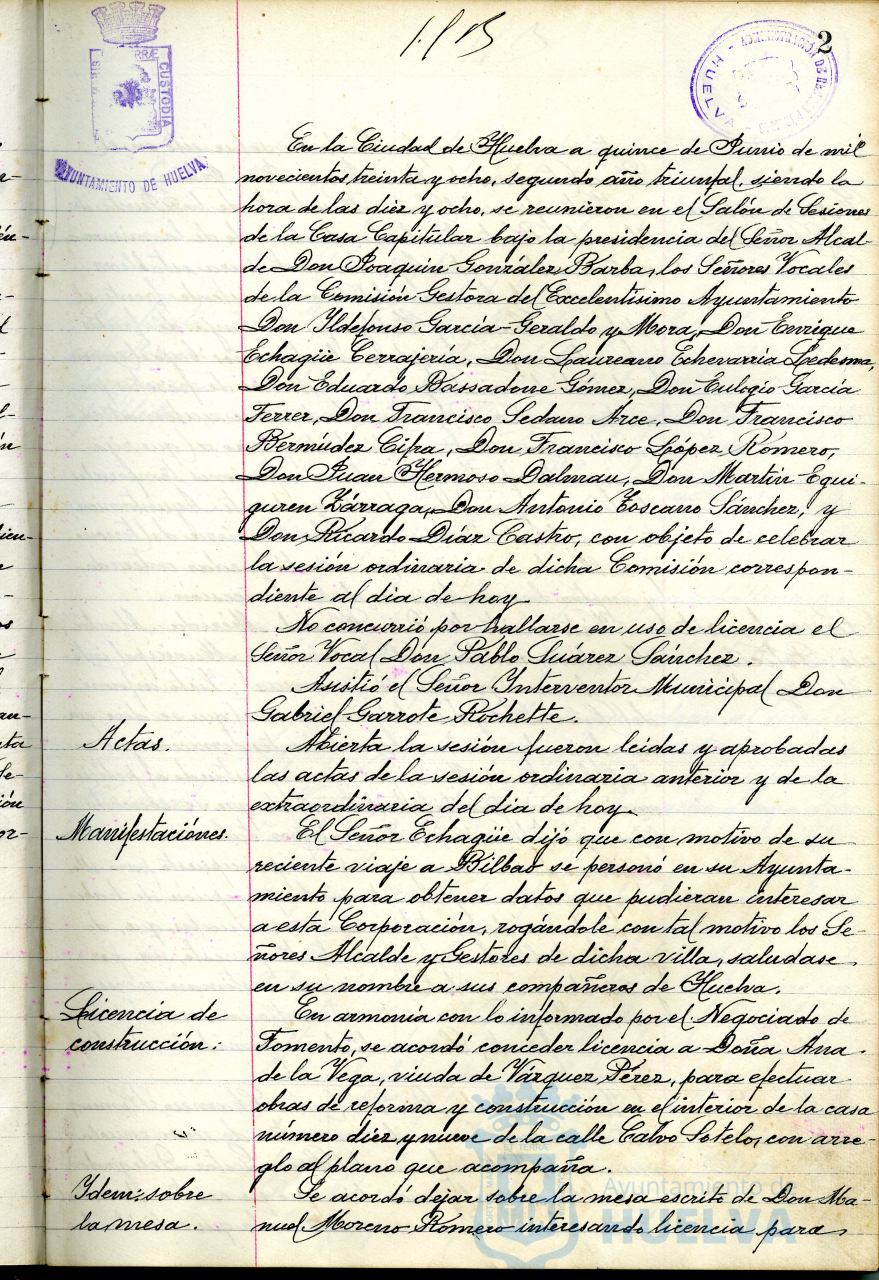 2
AYUNTAMIENTO DE HUELVA
CUSTODIA
HUELVA
En la Ciudad de Huelva a quince de Junio de mil
novecientos treinta y ocho, segundo año triunfal, siendo la
hora de las diez y ocho, se reunieron en el Salón de Sesiones
de la Casa Capitular bajo la presidencia del Señor Alcal-
de Don Joaquín González Barba, los Señores Vocales
de la Comisión Gestora del Excelentísimo Ayuntamiento
Don Ildefonso García-Geraldo y Mora, Don Enrique
Echagüe Cerrajería, Don Laureano Echevarría Ledesma,
Don Eduardo Bassadone Gómez, Don Eulogio García
Ferrer, Don Francisco Sedano Arce, Don Francisco
Bermúdez Cifra, Don Francisco López Romero,
Don Juan Hermoso Dalmau, Don Martín Egui-
guren Zárraga, Don Antonio Toscano Sánchez, y
Don Ricardo Díaz Castro, con objeto de celebrar
la sesión ordinaria de dicha Comisión correspon-
diente al dia de hoy.
No concurrió por hallarse en uso de licencia el
Señor Vocal Don Pablo Suárez Sánchez.
Asistió el Señor Interventor Municipal Don
Gabriel Garrote Rochette.
Actas.
Abierta la sesión fueron leidas y aprobadas
las actas de la sesión ordinaria anterior y de la
extraordinaria del dia de hoy.
Manifestaciónes.
El Señor Echagüe dijó que con motivo de su
reciente viaje a Bilbao se personó en su Ayunta-
miento para obtener datos que pudieran interesar
a esta Corporación, rogándole con tal motivo los Se-
ñores Alcalde y Gestores de dicha villa, saludase
en su nombre a sus compañeros de Huelva.
Licencia de
construcción:
En armonía con lo informado por el Negociado de
Fomento, se acordó conceder licencia a Doña Ana
de la Vega, viuda de Vázquez Pérez, para efectuar
obras de reforma y construcción en el interior de la casa
número diez y nueve de la calle Calvo Sotelo, con arre-
glo al plano que acompaña.
Idem: sobre
la mesa.
Se acordó dejar sobre la mesa escrito de Don Ma-
nuel Moreno Romero interesando licencia para
Ayuntamiento de
HUELVA